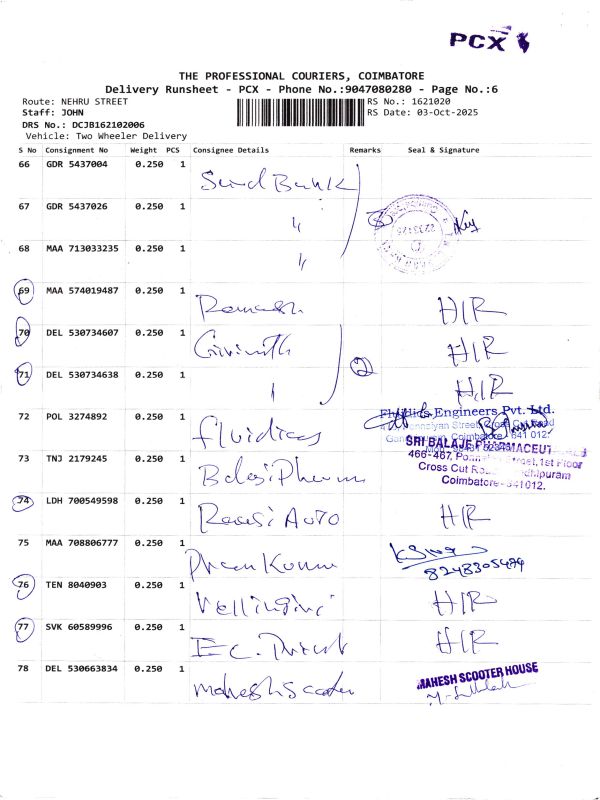 PCX
THE PROFESSIONAL COURIERS, COIMBATORE
Delivery Runsheet - PCX - Phone No.:9047080280 - Page No.:6
Route: NEHRU STREET
RS No.: 1621020
Staff: JOHN
RS Date: 03-Oct-2025
DRS No.: DCJB162102006
Vehicle: Two Wheeler Delivery
S No Consignment No Weight PCS Consignee Details Remarks Seal & Signature
66 GDR 5437004 0.250 1
67 GDR 5437026 0.250 1 "
68 MAA 713033235 0.250 1 "
69 MAA 574019487 0.250 1 Ramesh H/R
70 DEL 530734607 0.250 1 H/R
71 DEL 530734638 0.250 1 " 2 H/R
72 POL 3274892 0.250 1 fluidics
Fluidics Engineers Pvt. Ltd.
Coimbatore - 641 012.
73 TNJ 2179245 0.250 1 Balaji Pharma
SRI BALAJE PHARMACEUT
466-467, Street, 1st Floor
Cross Cut
Coimbatore-641012.
74 LDH 700549598 0.250 1 Auto H/R
75 MAA 708806777 0.250 1
8248305479
76 TEN 8040903 0.250 1 H/R
77 SVK 60589996 0.250 1 H/R
78 DEL 530663834 0.250 1 mahesh scooter
MAHESH SCOOTER HOUSE